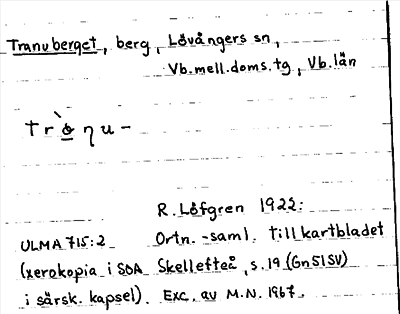 Tranuberget, berg, Lövångers sn,
Vb.mell.doms.tg, Vb.län
trò̲ŋu-
R. Löfgren 1922:
ULMA 715:2 Ortn.-saml. till kartbladet
(xerokopia i SOA Skellefteå, s.19 (Gn51SV)
i särsk. kapsel). Exc. av M.N. 1967.